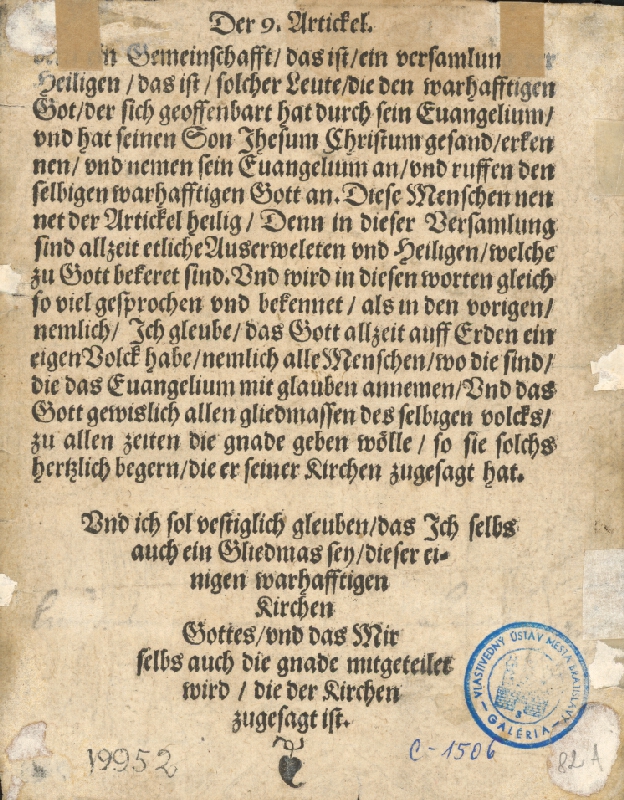 Der 9. Artickel.
Gemeinschafft/ das ist/ein versamlun
Heiligen / das ist / solcher Leute/die den warhafftigen
Got/der sich geoffenbart hat durch sein Euangelium/
vnd hat seinen Son Jhesum Christum gesand/erken
nen/ vnd nemen sein Euangelium an/vnd ruffen den
selbigen warhafftigen Gott an. Diese Menschen nen
net der Artickel heilig / Denn in dieser Versamlung
sind allzeit etliche Auserweleten vnd Heiligen/welche
zu Gott bekeret sind. Vnd wird in diesen worten gleich
so viel gesprochen vnd bekennet / als in den vorigen/
nemlich/ Ich gleube/ das Gott allzeit auff Erden ein
eigen Volck habe/nemlich alle Menschen/wo die sind/
die das Euangelium mit glauben annemen/Vnd das
Gott gewislich allen gliedmassen des selbigen volcks/
zu allen zeiten die gnade geben wölle / so sie solchs
hertzlich begern/die er seiner Kirchen zugesagt hat.
Vnd ich sol vestiglich gleuben/das Ich selbs
auch ein Gliedmas sey/dieser ei-
nigen warhafftigen
Kirchen
Gottes/vnd das Mir
selbs auch die gnade mitgeteilet
wird / die der Kirchen
zugesagt ist.
VLASTIVEDNÝ ÚSTAV MESTA BRATISLAVY
GALÉRIA
19952
C-1506
82 A